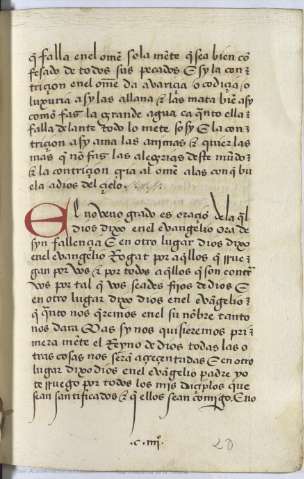 q̃ falla enel om̃e sola mẽte q̃ sea bien cõ
fesado de todos sus pecados E sy la con
triçion enel om̃e da avariçia / o codiçia / o
luxuria asy las allana & las mata biẽ asy
como faz la grande agua ca q̃nto ella
falla delante todo lo mete so sy E la con
triçion asy ama las animas & quier las
mas q̃ nõ faz las alegrias deste mũdo
& la contriçion guia al om̃e alas con q̃ bu
ela a dios del çielo
El noveno grado es oraçiõ dela q̃l
dios dixo enel evangelio ora de
syn fallençia E en otro lugar dios dixo
enel evangelio Rogat por aq̃llos q̃ Rue
gan por vos & por todos aq̃llos q̃ son cont̃
vos por tal q̃ vos seades fijos de dios E
en otro lugar dixo dios enel evãgelio
q̃ q̃nto nos q̃remos enel su nõbre tanto
nos dara Mas sy nos quisieremos pri
mera mẽte el Reyno de dios todas las o
tras cosas nos serã acreçentadas E en otro
lugar dixo dios enel evãgelio padre yo
te Ruego por todos los mis diçiplos que
sean santificados & q̃ ellos sean comigo E no
.c. iiij.
20